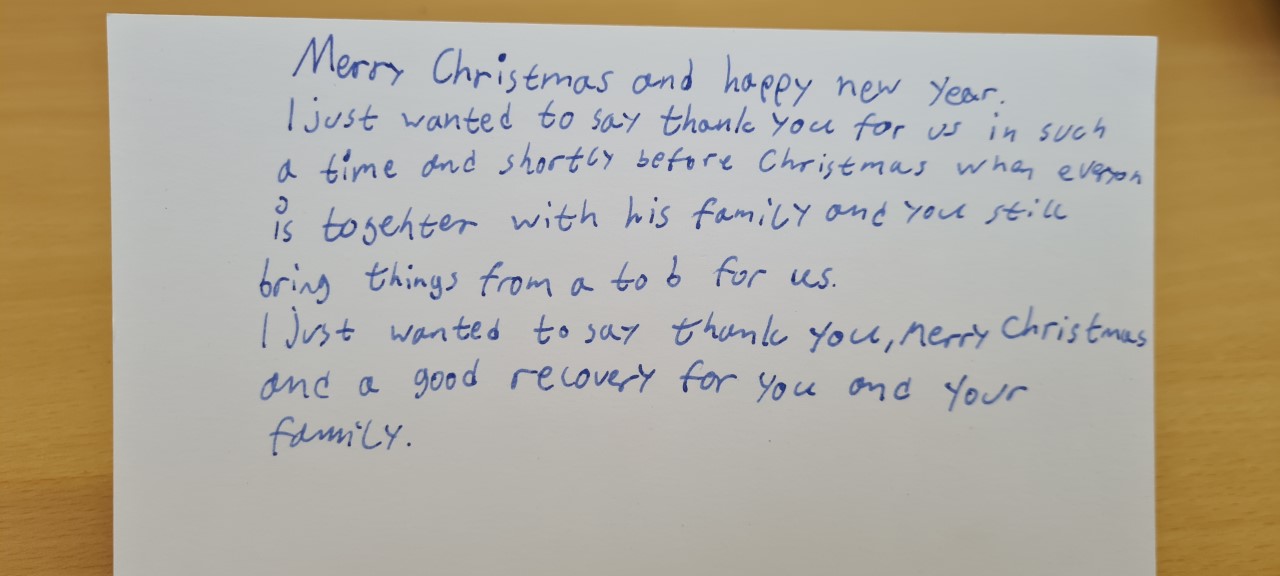 Merry Christmas and happy new year.
I just wanted to say thank you for us in such
a time and shortly before Christmas when everyon
is togehter with his family and you still
bring things from a to b for us.
I just wanted to say thank you, merry Christmas
and a good recovery for you and your
family.